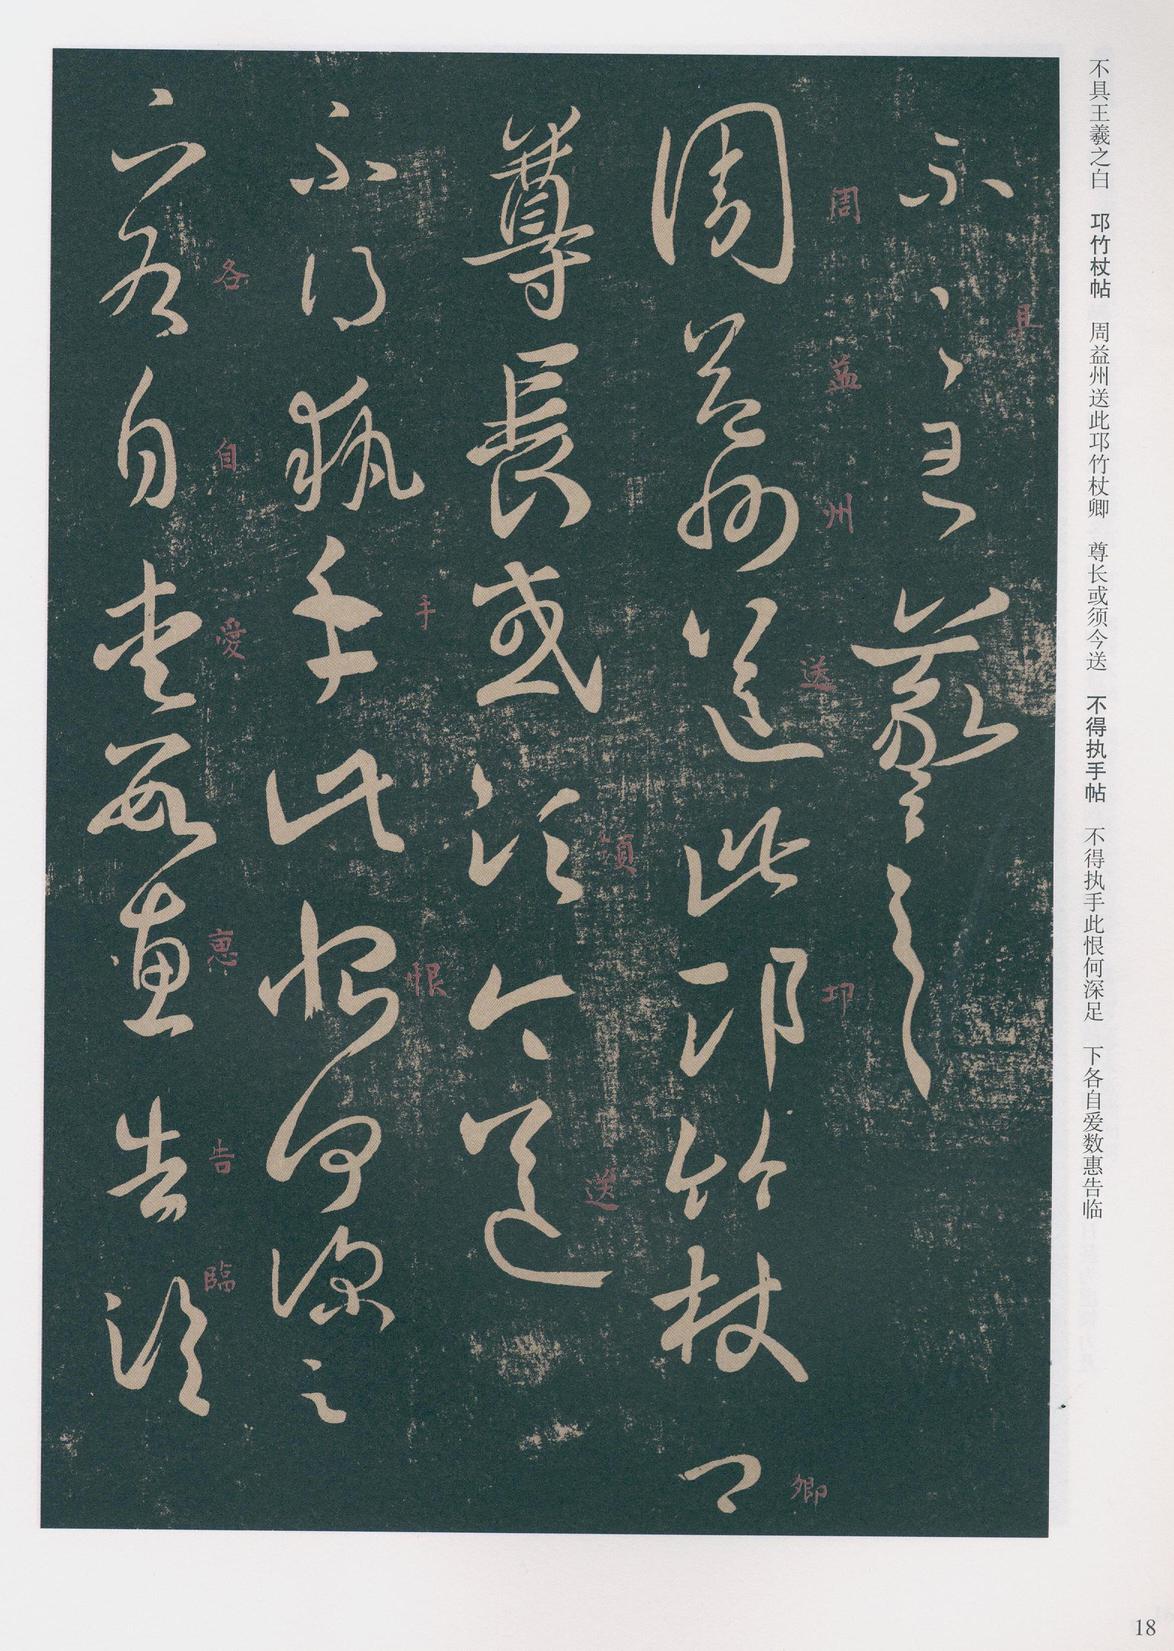 不具王羲之白　邛竹杖帖　周益州送此邛竹杖卿　尊长或须今送　不得执手帖　不得执手此恨何深足　下各自爱数惠告临
不具王羲之
具
周益州送此邛竹杖卿
周益州送邛卿
尊長或須今送
須送
不得執手此恨何深足
手恨
下各自愛數惠告臨
各自愛惠告臨
18